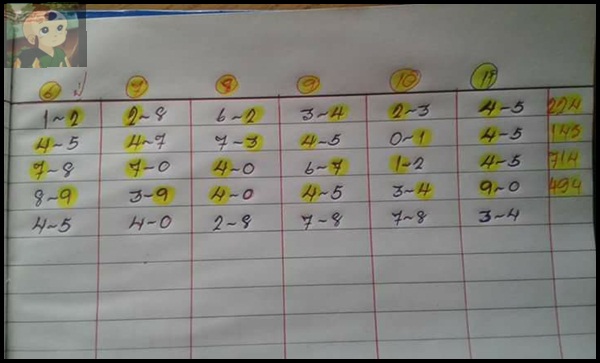 6 7 8 9 10 11
1~2 2~8 6~2 3~4 2~3 4-5 224
4~5 4~7 7-3 4~5 0~1 4-5 143
7~8 7-0 4~0 6~7 1-2 4-5 714
8~9 3~9 4~0 4~5 3~4 9~0 494
4~5 4-0 2~8 7~8 7~8 3~4